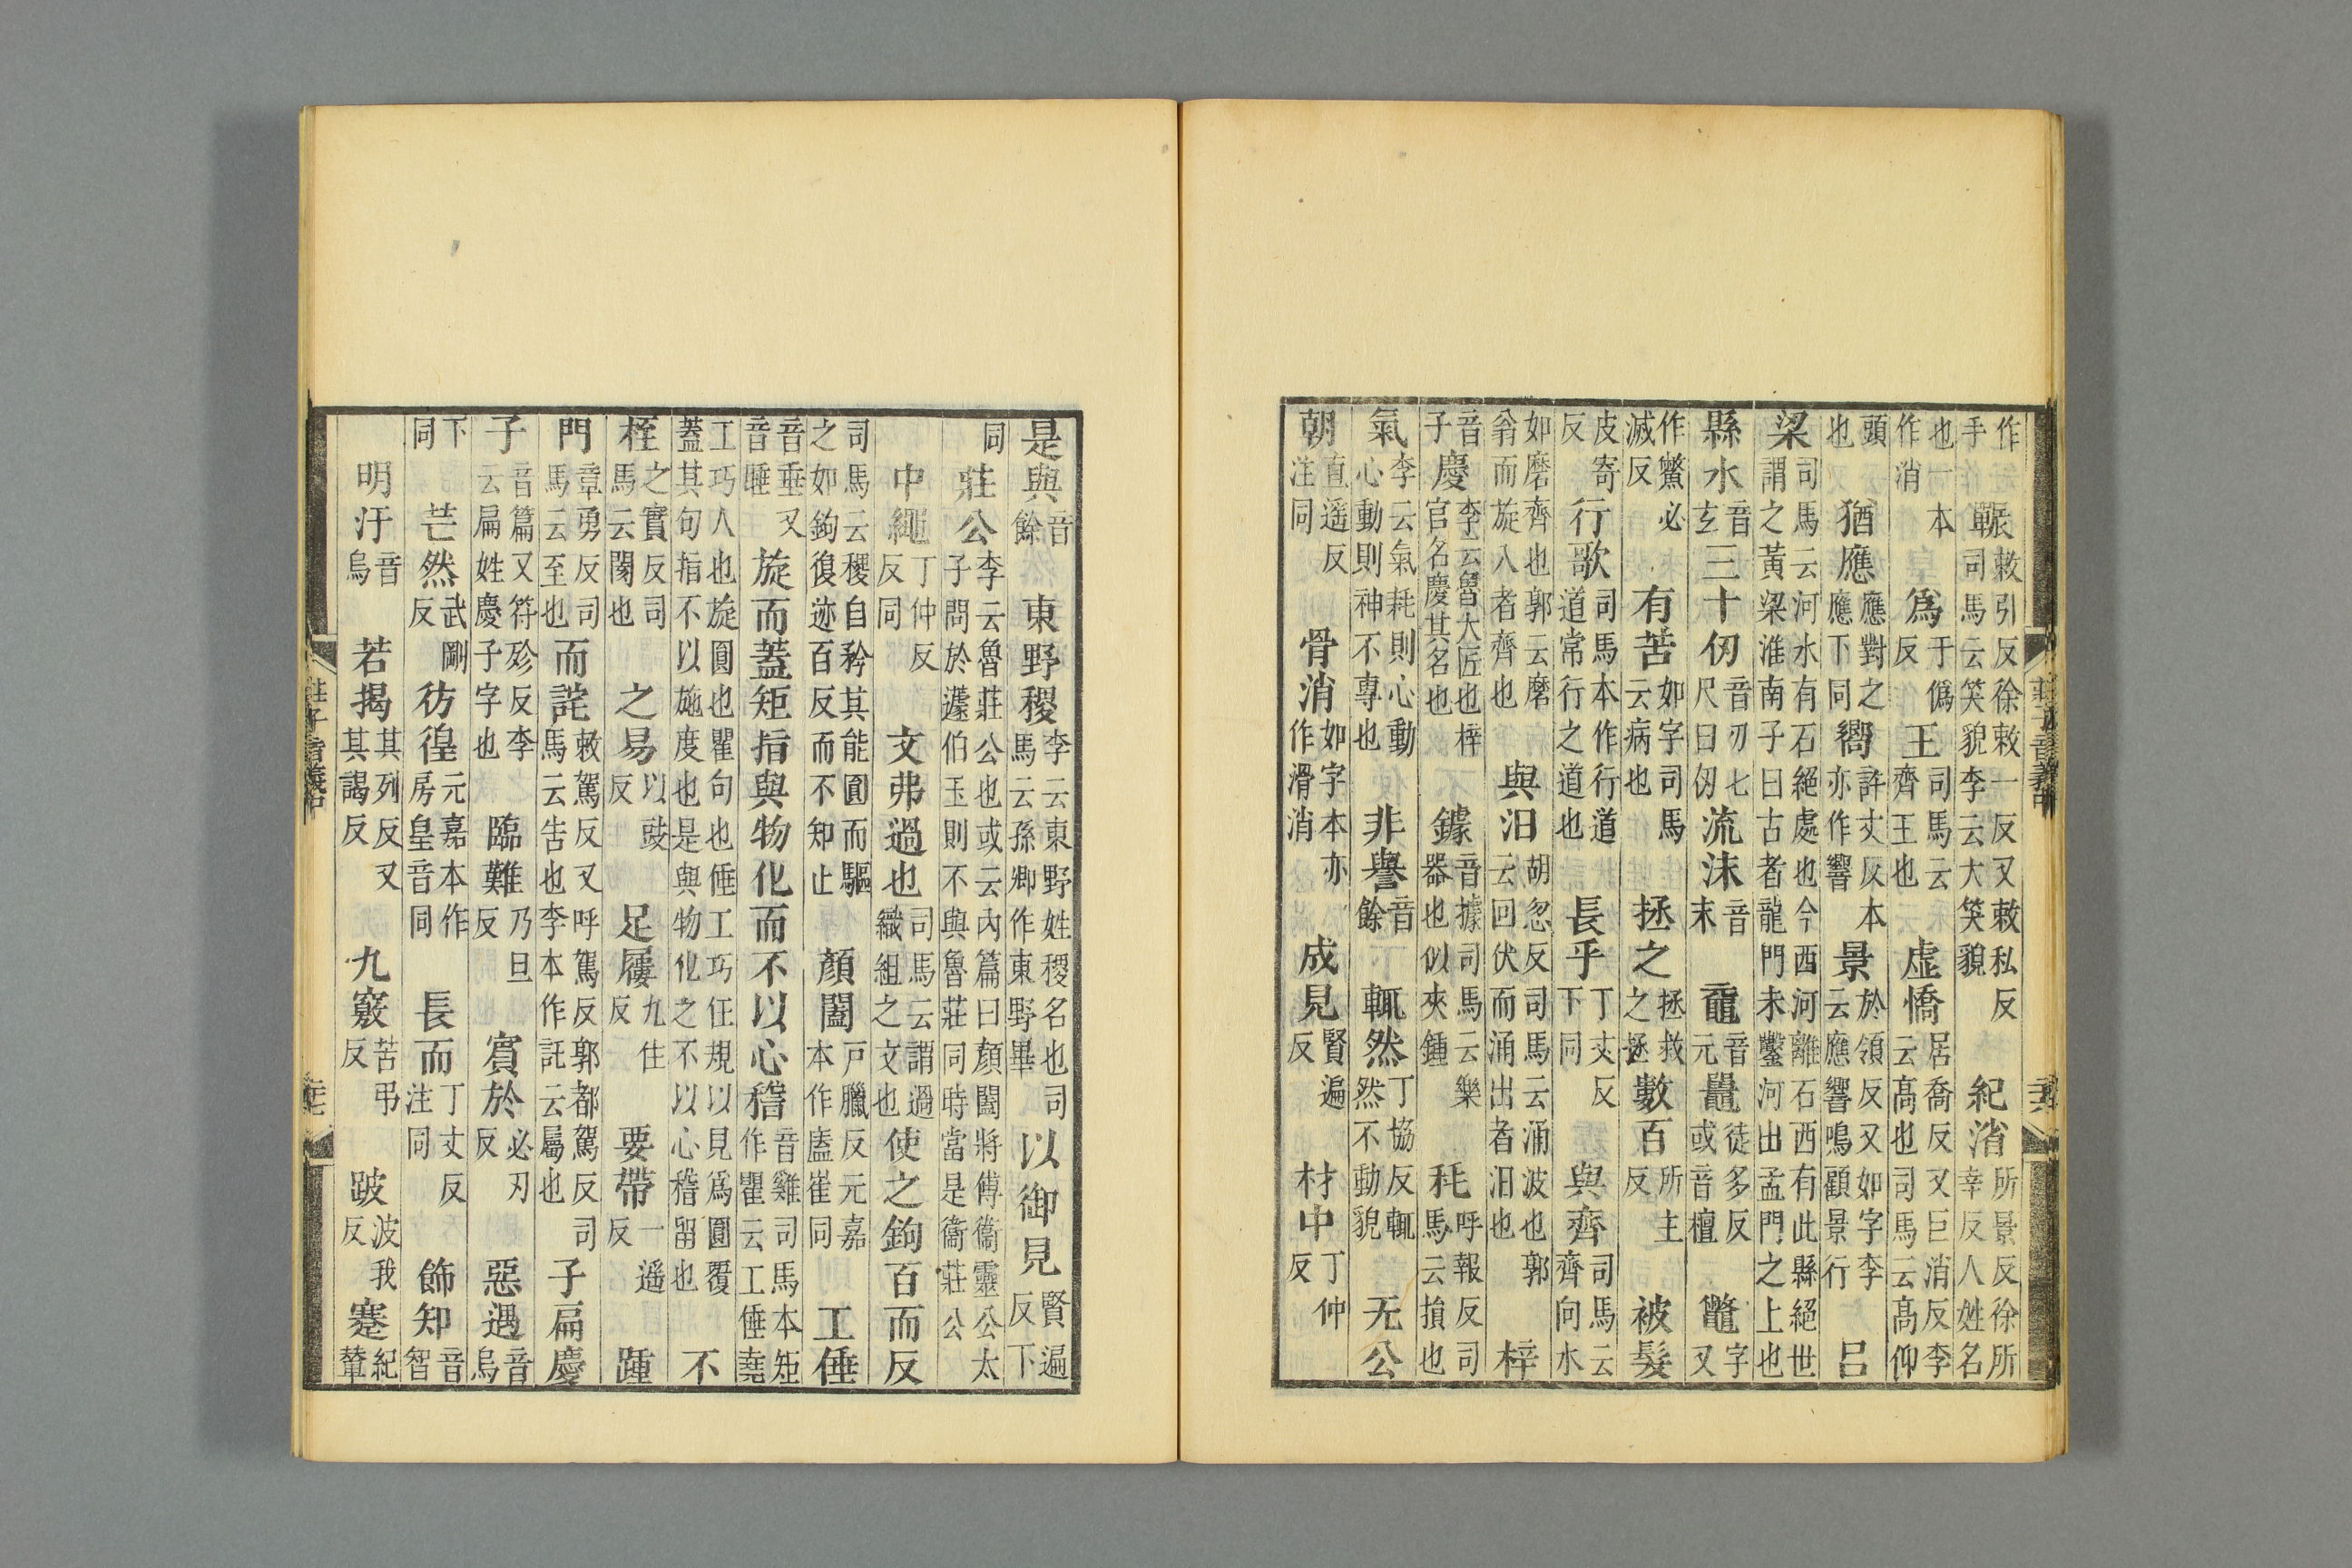 莊子音義中 二十六
作手 辴敕引反徐敕一反又敕私反司馬云笑貌李云大笑貌 紀渻所景反徐所幸反人姓名
也一本作消 爲于僞反 王司馬云齊王也 虛憍居喬反又巨消反李云高也司馬云高仰
頭也 猶應應對之應下同 嚮許丈反本亦作響 景於領反又如字李云應響鳴顧景行 呂
梁司馬云河水有石絕處也今西河離石西有此縣絕世謂之黃梁淮南子曰古者龍門未鑿河出孟門之上也
縣水音玄 三十仞音刃七尺曰仞 流沫音末 黿音元 鼉徒多反或音檀 鼈字又
作鱉必滅反 有苦如字司馬云病也 拯之拯救之拯 數百所主反 被髮
皮寄反 行歌司馬本作行道道常行之道也 長乎丁丈反下同 與齊司馬云齊向水
如磨齊也郭云磨翁而旋入者齊也 與汨胡忽反司馬云涌波也郭云回伏而涌出者汨也 梓
音子 慶李云魯大匠也梓官名慶其名也 鐻音據司馬云樂器也似夾鍾 耗呼報反司馬云損也
氣李云氣耗則心動心動則神不專也 非譽音餘 輒然丁協反輒然不動貌 无公
朝直遥反注同 骨消如字本亦作滑消 成見賢遍反 材中丁仲反
是與音餘 東野稷李云東野姓稷名也司馬云孫卿作東野畢 以御見賢遍反下
同 莊公李云魯莊公也或云內篇曰顏闔將傅衞靈公太子問於蘧伯玉則不與魯莊同時當是衞莊公
中繩丁仲反同 文弗過也司馬云謂過織組之文也 使之鉤百而反
司馬云稷自矜其能圓而驅之如鉤復迹百反而不知止 顏闔戶臘反元嘉本作盧崔同 工倕
音垂又音睡 旋而蓋矩指與物化而不以心稽音雞司馬本矩作瞿云工倕堯
工巧人也旋圓也瞿句也倕工巧任規以見爲圓覆蓋其句指不以施度也是與物化之不以心稽留也 不
桎之實反司馬云閡也 之易以豉反 足屨九住反 要帶一遥反 踵
門章勇反司馬云至也 而詫敕駕反又呼駕反郭都駕反司馬云告也李本作託云屬也 子扁慶
子音篇又符殄反李云扁姓慶子字也 臨難乃旦反 賓於必刃反 惡遇音烏
下同 芒然武剛反 彷徨元嘉本作房皇音同 長而丁丈反注同 飾知音智
明汙音烏 若揭其列反又其謁反 九竅苦弔反 跛波我反 蹇紀輦
莊子音義中 二十七